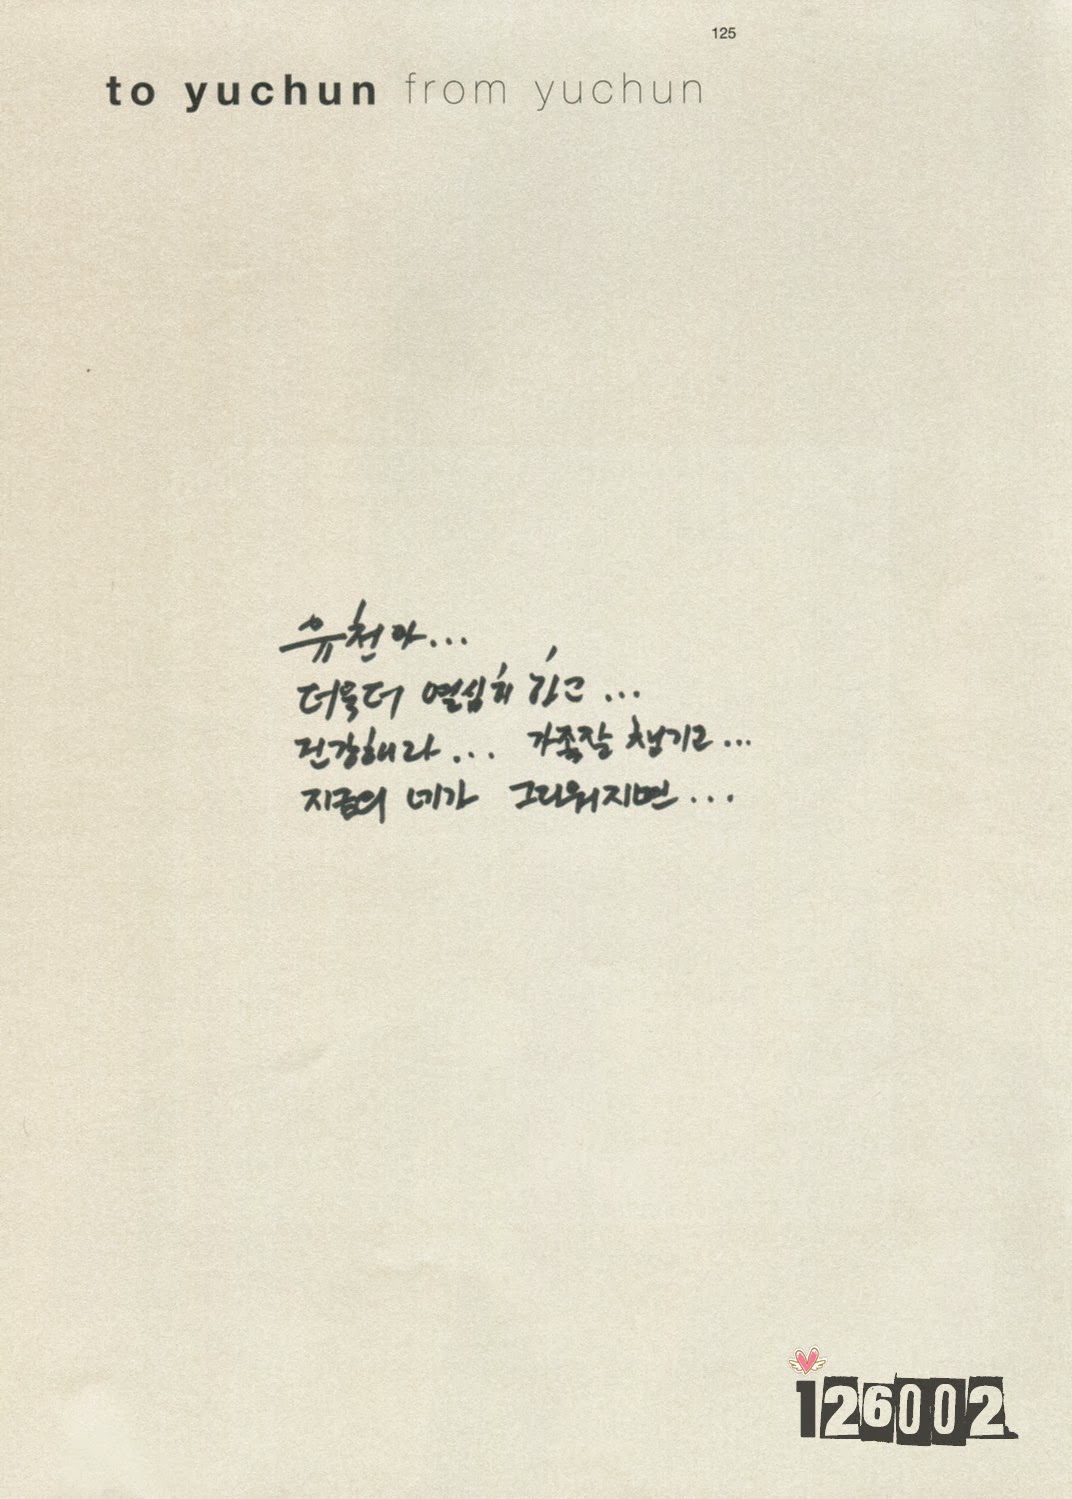 125
to yuchun from yuchun
유천아...
더욱더 열심히 하고...
건강해라... 가족잘 챙기고...
지금의 네가 그리워지면...
126002